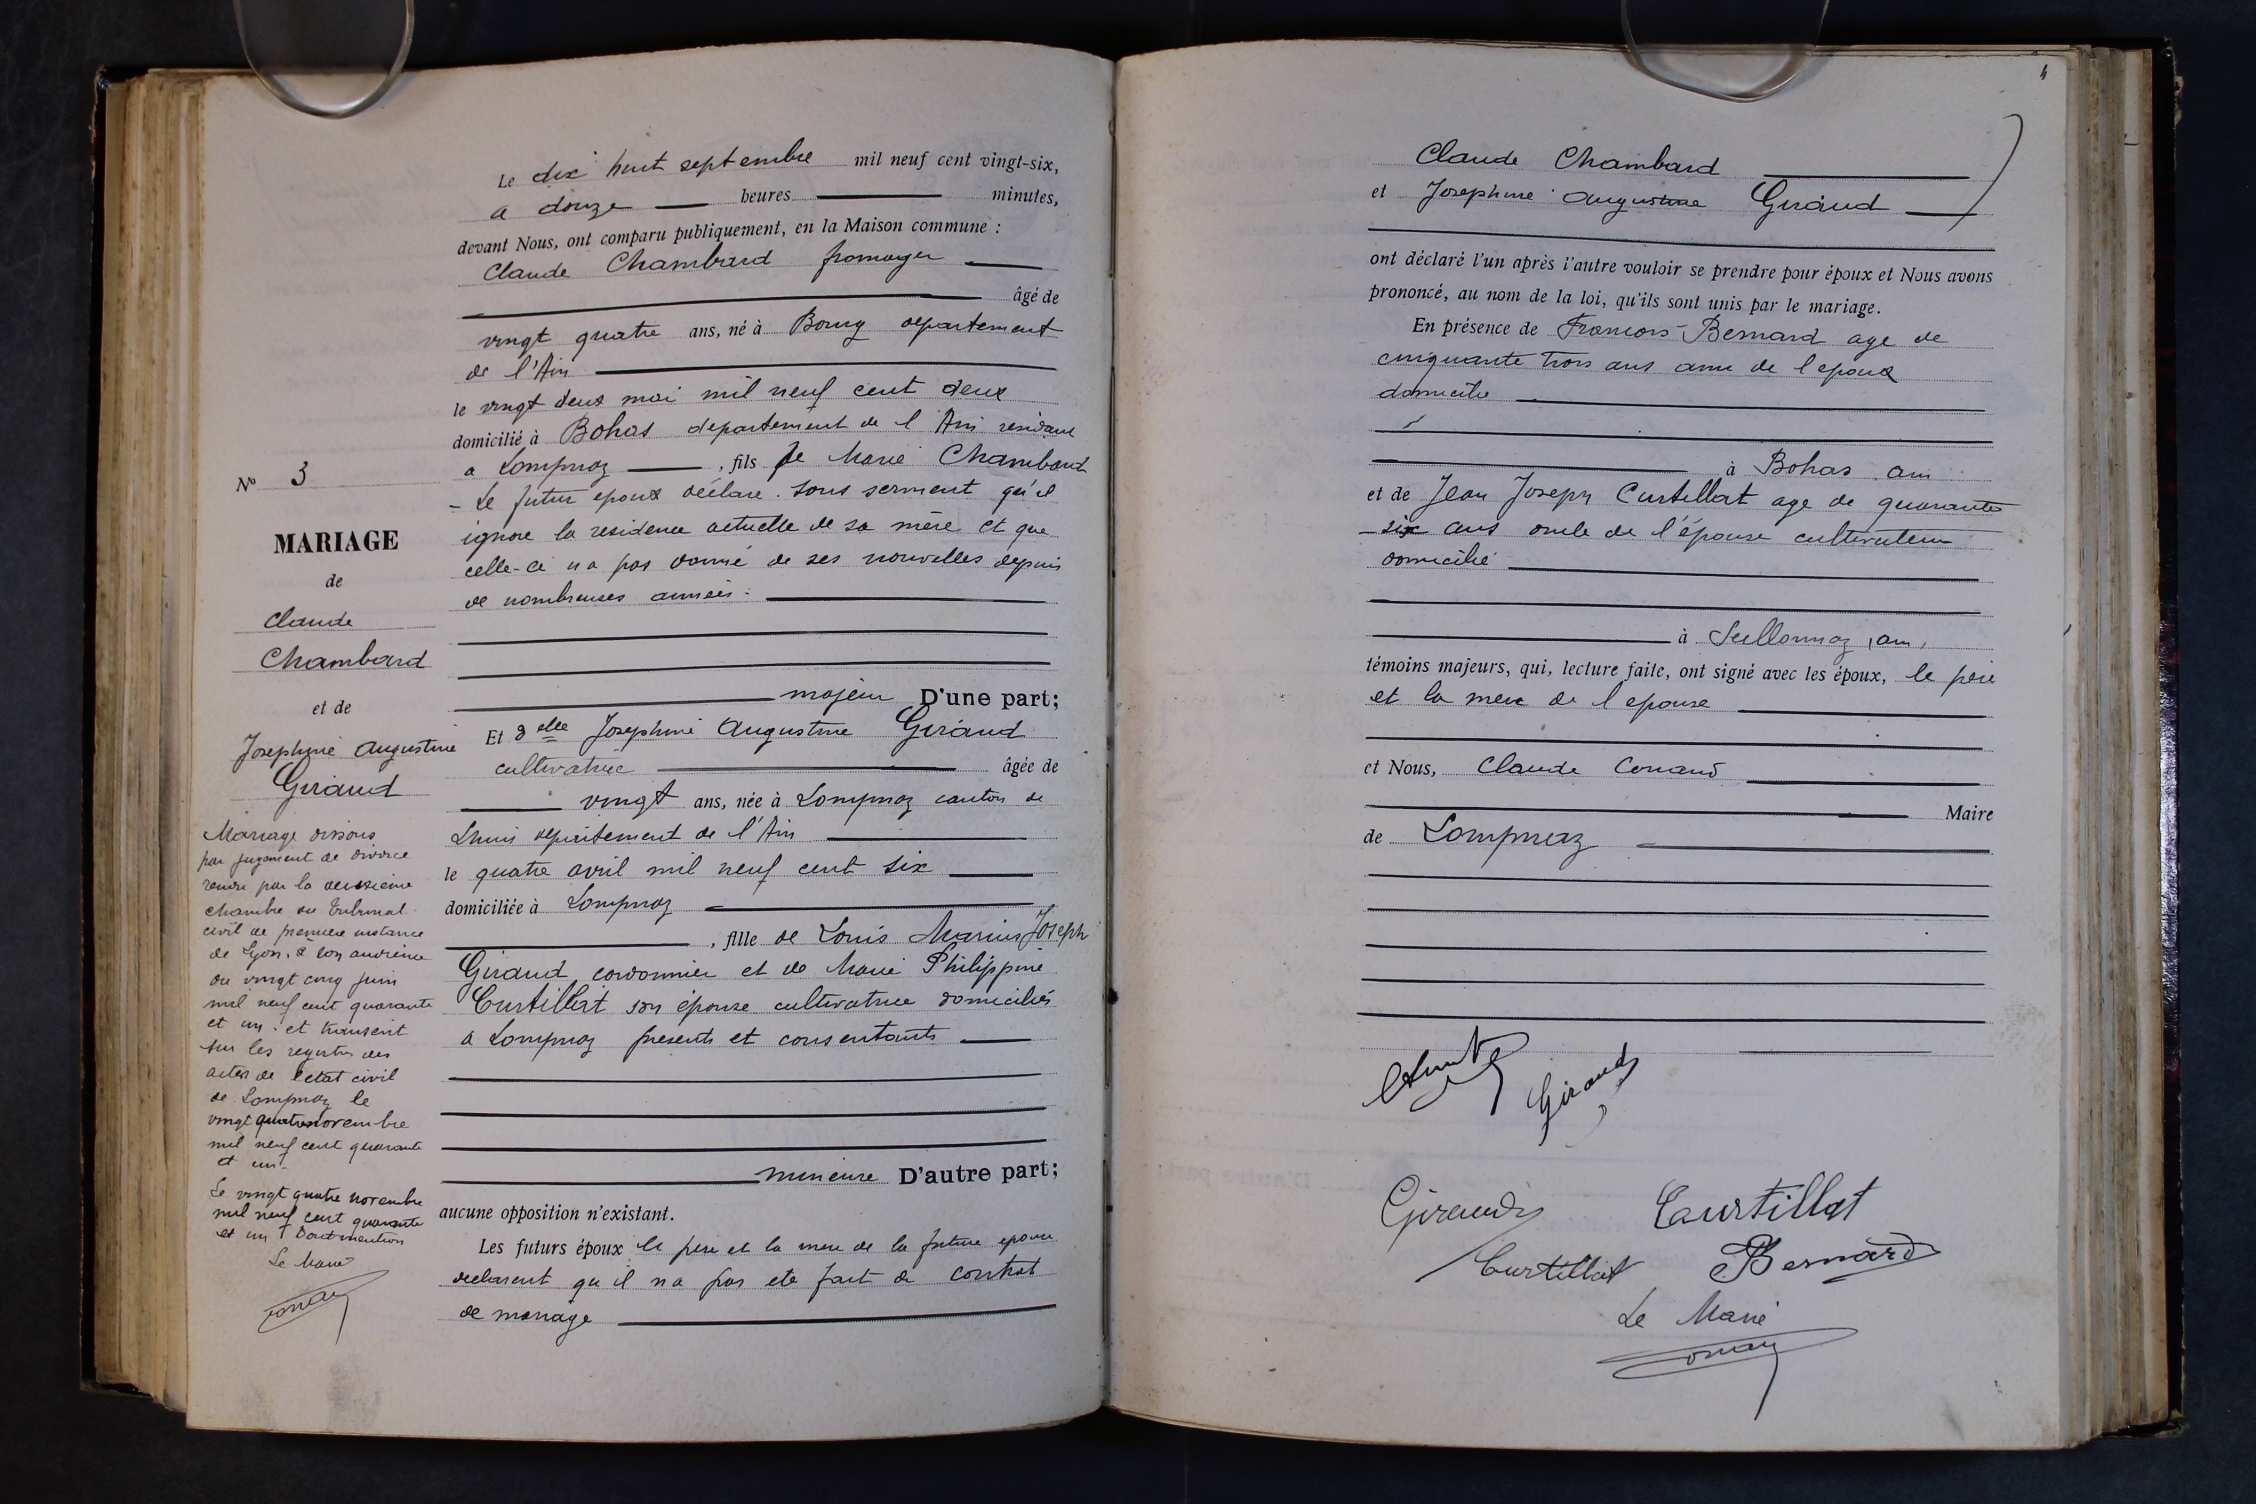 Le dix huit septembre mil neuf cent vingt-six,
a douze heures minutes,
devant Nous, ont comparu publiquement, en la Maison commune :
Claude Chambard fromager
âgé de
vingt quatre ans, né à Bourg departement
de l'Ain
le vingt deux mai mil neuf cent deux
domicilié à Bohas departement de l Ain residant
a Lompnaz , fils de Marie Chambard
- Le futur epoux déclare sous serment qu'il
ignore la residence actuelle de sa mère et que
celle-ci n a pas donné de ses nouvelles depuis
de nombreuses années.
majeur D'une part;
Et delle Josephine Augustine Giraud
cultivatrice âgée de
vingt ans, née à Lompnaz canton de
Lhuis departement de l'Ain
le quatre avril mil neuf cent six
domiciliée à Lompnaz
, fille de Louis Marius Joseph
Giraud cordonnier et de Marie Philippine
Curtillat son épouse cultivatrice domiciliés
a Lompnaz presents et consentants
mineure D'autre part;
aucune opposition n'existant.
Les futurs époux le pere et la mere de la future epouse
declarent qu il n a pas ete fait de contrat
de mariage
No 3
MARIAGE
de
Claude
Chambard
et de
Josephine Augustine
Giraud
Mariage dissous
par jugement de divorce
rendu par la deuxieme
chambre du Tribunal
civil de premiere instance
de Lyon, à son audience
du vingt cinq juin
mil neuf cent quarante
et un. et transcrit
sur les registres des
actes de l'etat civil
de Lompnaz le
vingt quatre Novembre
mil neuf cent quarante
et un.
Le vingt quatre novembre
mil neuf cent quarante
et un Dont mention
Le Maire
4
Claude Chambard
et Josephine Augustine Giraud
ont déclaré l'un après l'autre vouloir se prendre pour époux et Nous avons
prononcé, au nom de la loi, qu'ils sont unis par le mariage.
En présence de Francois Bernard age de
cinquante trois ans ami de l epoux
domicilie
à Bohas ain
et de Jean Joseph Curtillat age de quarante
- six ans oncle de l'épouse cultivateur
domicilié
à Seillonnaz, ain,
témoins majeurs, qui, lecture faite, ont signé avec les époux, le père
et la mere de l epouse
et Nous, Claude Conand
Maire
de Lompnaz
Giraud
Giraud Curtillat
Curtillat Bernard
Le Maire